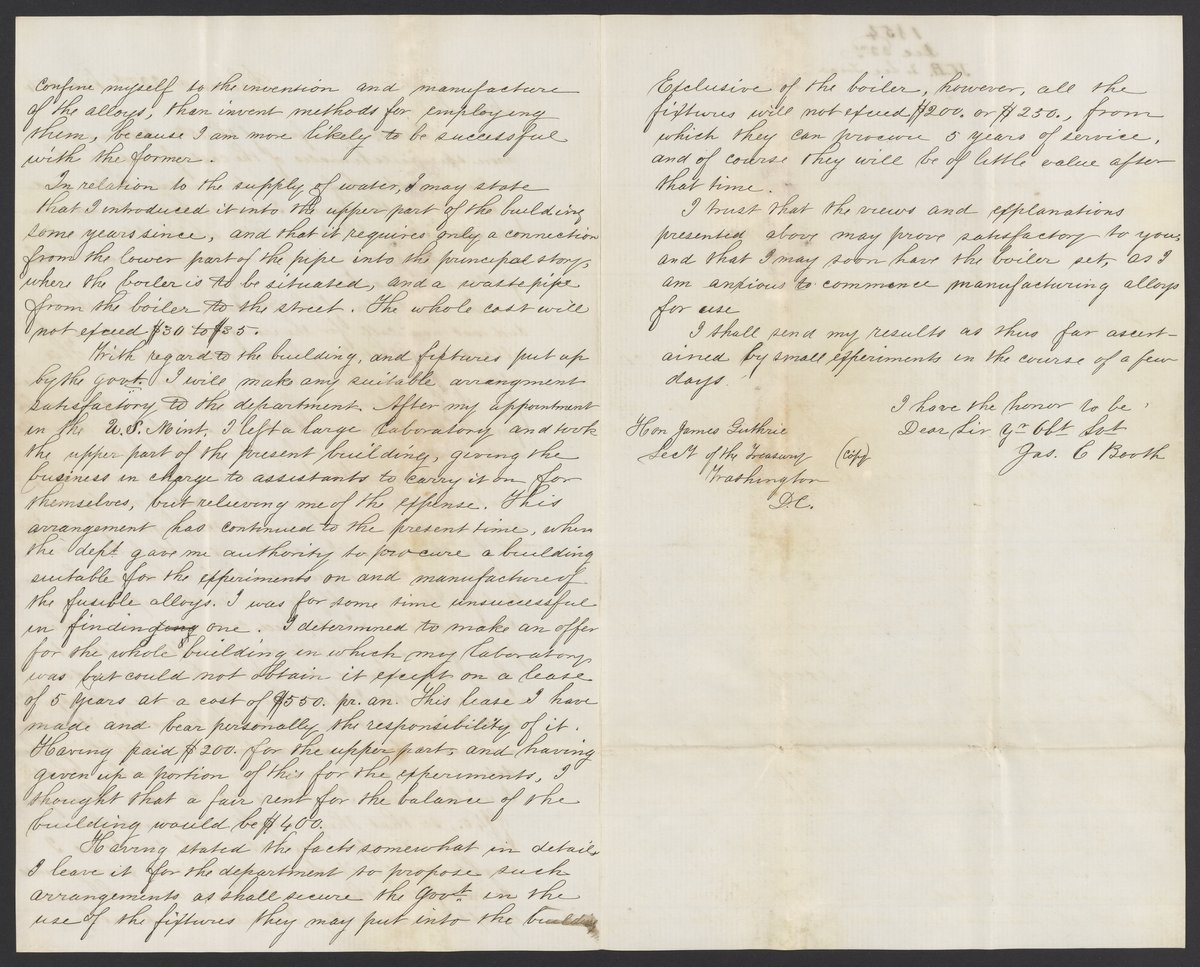 confine myself to the invention and manufacture
of the alloys, than invent methods for employing
them, because I am more likely to be successful
with the former.
In relation to the supply of water, I may state
that I introduced it into the upper part of the building
some years since, and that it requires only a connection
from the lower part of the pipe into the principal story,
where the boiler is to be situated, and a waste pipe
from the boiler to the street. The whole cost will
not exceed $30 to $35.
With regard to the building, and fixtures put up
by the govt. I will make any suitable arrangment
satisfactory to the department. After my appointment
in the U.S. Mint, I left a large laboratory and took
the upper part of the present building, giving the
business in charge to assistants to carry it on for
themselves, but relieving me of the expense. This
arrangement has continued to the present time, when
the dept. gave me authority to procure a building
suitable for the experiments on and manufacture of
the fusible alloys. I was for some time unsuccessful
in finding one. I determined to make an offer
for the whole building in which my laboratory
was but could not obtain it except on a lease
of 5 years at a cost of $550. pr. an. This lease I have
made and bear personally the responsibility of it.
Having paid $200. for the upper part, and having
given up a portion of this for the experiments, I
thought that a fair rent for the balance of the
building would be $400.
Having stated the facts somewhat in detail,
I leave it for the department to propose such
arrangements as shall secure the govt. in the
use of the fixtures they may put into the building
Exclusive of the boiler, however, all the
fixtures will not exceed $200. or $250., from
which they can procure 5 years of service,
and of course they will be of little value after
that time.
I trust that the views and explanations
presented above may prove satisfactory to you,
and that I may soon have the boiler set, as I
am anxious to commence manufacturing alloys
for use
I shall send my results as thus far ascert-
ained by small experiments in the course of a few
days.
I have the honor to be,
Dear Sir yr obt Svt
Jas. C Booth
Hon James Guthrie
Secy of the Treasury (Copy)
Washington
D.C.